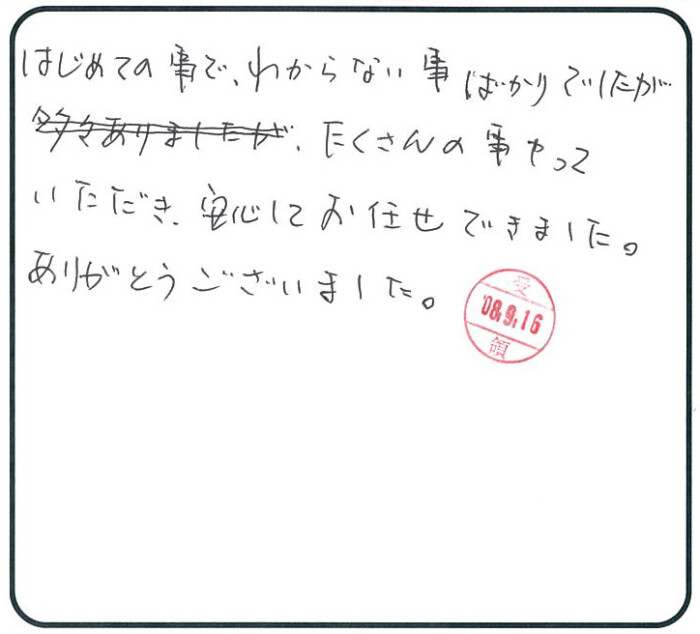 はじめての事で、わからない事ばかりでしたが
多々ありましたが、たくさんの事やって
いただき、安心してお任せできました。
ありがとうございました。
受
'08.9.16
領